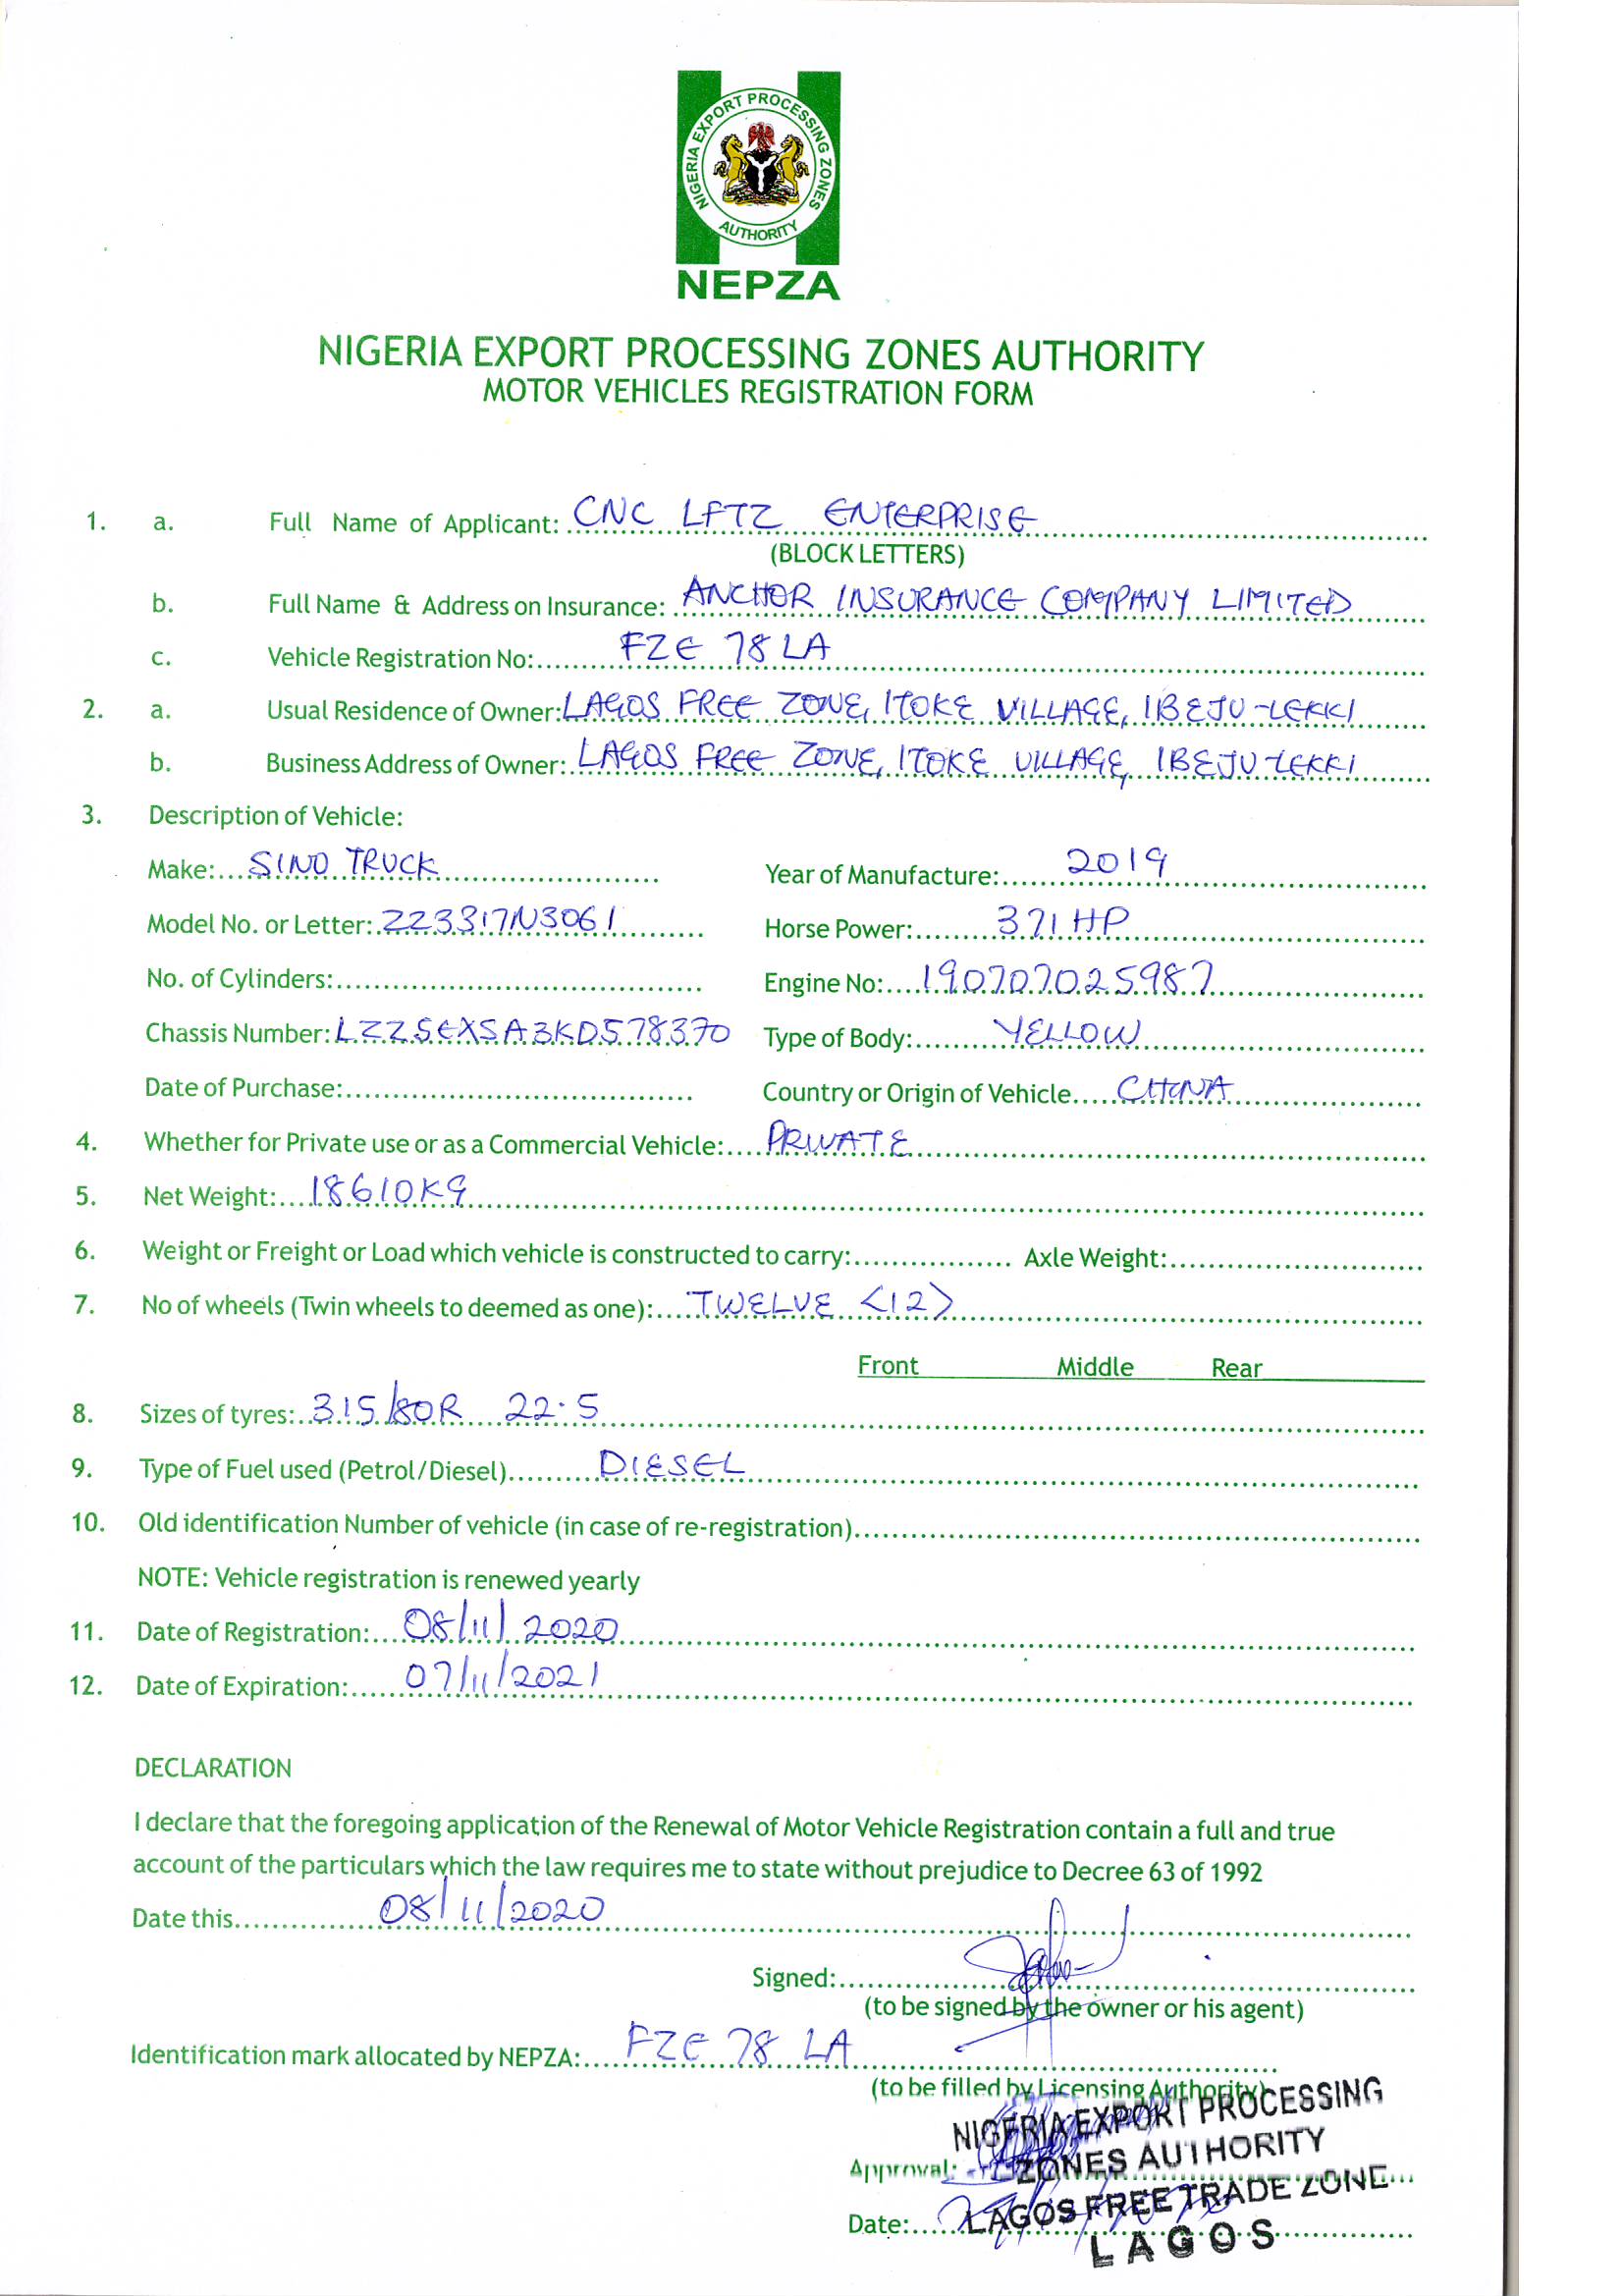 NIGERIA EXPORT PROCESSING ZONES
AUTHORITY
NEPZA
NIGERIA EXPORT PROCESSING ZONES AUTHORITY
MOTOR VEHICLES REGISTRATION FORM
1. a. Full Name of Applicant: CNC LFTZ ENTERPRISE
(BLOCK LETTERS)
b. Full Name & Address on Insurance: ANCHOR INSURANCE COMPANY LIMITED
c. Vehicle Registration No: FZE 78 LA
2. a. Usual Residence of Owner: LAGOS FREE ZONE, ITOKE VILLAGE, IBEJU-LEKKI
b. Business Address of Owner: LAGOS FREE ZONE, ITOKE VILLAGE, IBEJU-LEKKI
3. Description of Vehicle:
Make: SINO TRUCK Year of Manufacture: 2019
Model No. or Letter: ZZ3317N3061 Horse Power: 371 HP
No. of Cylinders: Engine No: 190707025987
Chassis Number: LZZ5EXSA3KD578370 Type of Body: YELLOW
Date of Purchase: Country or Origin of Vehicle CHINA
4. Whether for Private use or as a Commercial Vehicle: PRIVATE
5. Net Weight: 18610KG
6. Weight or Freight or Load which vehicle is constructed to carry: Axle Weight:
7. No of wheels (Twin wheels to deemed as one): TWELVE <12>
Front Middle Rear
8. Sizes of tyres: 315/80R 22.5
9. Type of Fuel used (Petrol/Diesel) DIESEL
10. Old identification Number of vehicle (in case of re-registration)
NOTE: Vehicle registration is renewed yearly
11. Date of Registration: 08/11/2020
12. Date of Expiration: 07/11/2021
DECLARATION
I declare that the foregoing application of the Renewal of Motor Vehicle Registration contain a full and true
account of the particulars which the law requires me to state without prejudice to Decree 63 of 1992
Date this 08/11/2020
Signed:
(to be signed by the owner or his agent)
Identification mark allocated by NEPZA: FZE 78 LA
(to be filled by Licensing Authority)
NIGERIA EXPORT PROCESSING
Approval: ZONES AUTHORITY
LAGOS FREE TRADE ZONE
Date:
LAGOS